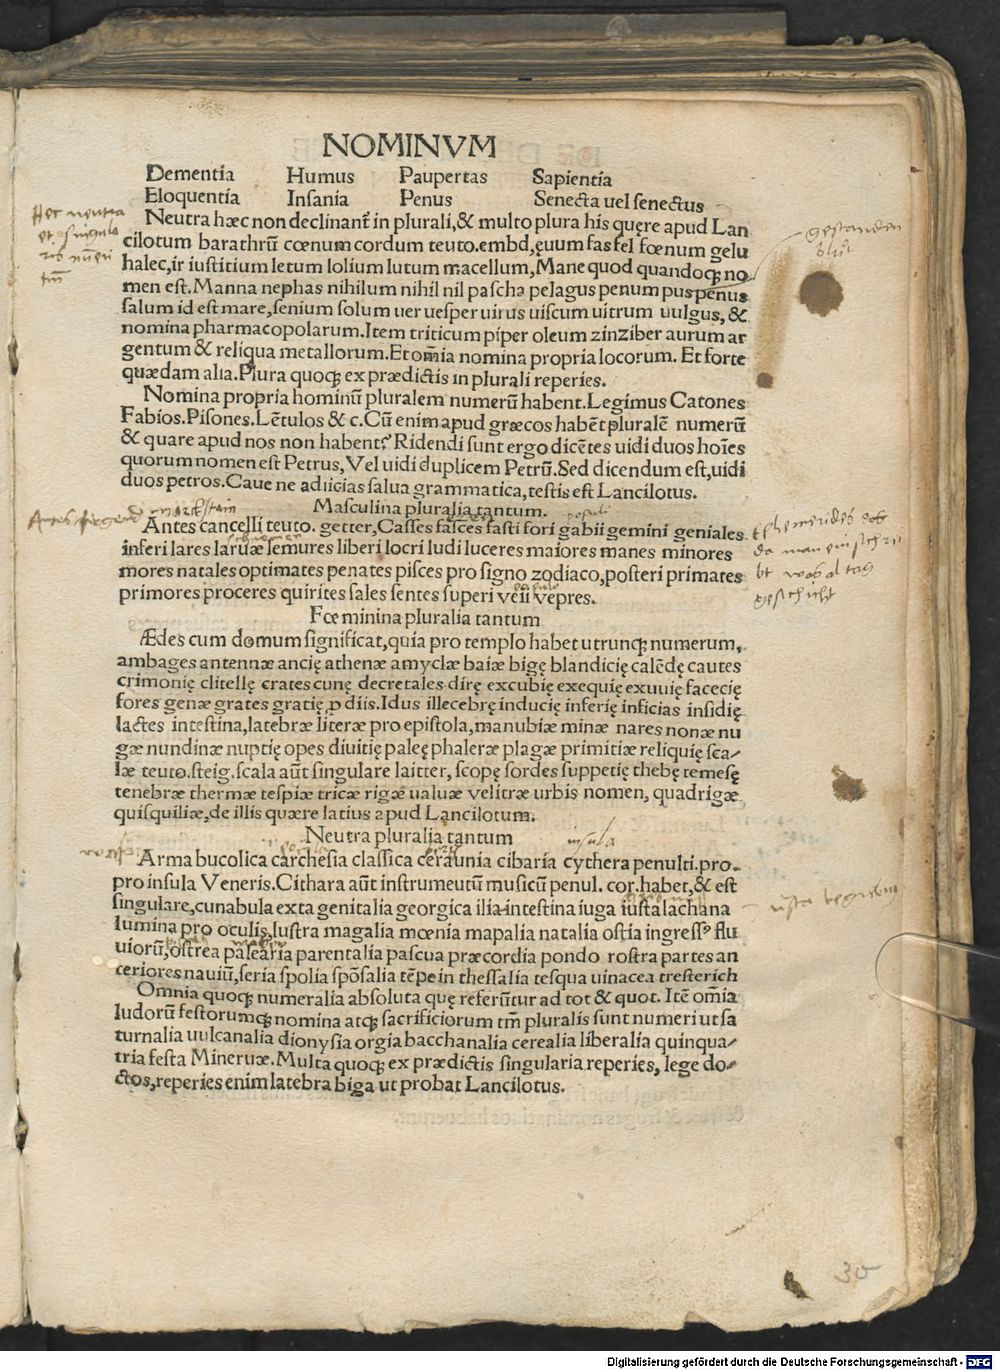 NOMINVM
Dementia Humus Paupertas Sapientia
Eloquentia Insania Penus Senecta uel senectus
Neutra hæc non declinant᷑ in plurali,& multo plura his quęre apud Lan
cilotum barathrū cœnum cordum teuto.embd,ęuum fas fel fœnum gelu
halec,ir iustitium letum lolium lutum macellum,Mane quod quandoqꝫ no
men est.Manna nephas nihilum nihil nil pascha pelagus penum pus penus
salum id est mare,senium solum uer uesper uirus uiscum uitrum uulgus,&
nomina pharmacopolarum.Item triticum piper oleum zinziber aurum ar
gentum & reliqua metallorum.Et om̄ia nomina propria locorum. Et forte
quædam alia.Plura quoqꝫ ex prædictis in plurali reperies.
Nomina propria hominū pluralem numerū habent.Legimus Catones
Fabios.Pisones.Lētulos & c.Cū enim apud græcos habēt pluralē numerū
& quare apud nos non habent?Ridendi sunt ergo dicētes uidi duos hoīes
quorum nomen est Petrus,Vel uidi duplicem Petrū.Sed dicendum est,uidi
duos petros.Caue ne adiicias salua grammatica,testis est Lancilotus.
Masculina pluralia tantum.
Antes cancelli teuto. getter,Casses fasces fasti fori gabii gemini geniales
inferi lares laruæ lemures liberi locri ludi luceres maiores manes minores
mores natales optimates penates pisces pro signo zodiaco,posteri primates
primores proceres quirites sales sentes superi veii vepres.
Fœminina pluralia tantum
Ædes cum domum significat,quia pro templo habet utrunqꝫ numerum,
ambages antennæ ancię athenæ amyclæ baiæ bigę blandicię calēdę cautes
crimonię clitellę crates cunę decretales dirę excubię exequię exuuię facecię
fores genæ grates gratię,ꝓ diis.Idus illecebrę inducię inferię inficias insidię
lactes intestina,latebræ literæ pro epistola,manubiæ minæ nares nonæ nu
gæ nundinæ nuptię opes diuitię paleę phaleræ plagæ primitiæ reliquię sca-
læ teuto.steig.scala aūt singulare laitter, scopę sordes suppetię thebę temesę
tenebræ thermæ tespiæ tricæ rigæ ualuæ velitræ urbis nomen, quadrigæ
quisquiliæ,de illis quære latius apud Lancilotum.
Neutra pluralia tantum
Arma bucolica carchesia classica ceraunia cibaria cythera penulti.pro.
pro insula Veneris.Cithara aūt instrumeutū musicū penul. cor.habet,& est
singulare,cunabula exta genitalia georgica ilia-intestina iuga iusta lachana
lumina pro oculis,lustra magalia mœnia mapalia natalia ostia ingressꝰ flu
uiorū,ostrea palearia parentalia pascua præcordia pondo rostra partes an
teriores nauiū,seria spolia spōsalia tēpe in thessalia tesqua uinacea tresterich
Omnia quoqꝫ numeralia absoluta quę referūtur ad tot & quot. Itē om̄ia
ludorū festorumqꝫ nomina atqꝫ sacrificiorum tm̄ pluralis sunt numeri ut sa
turnalia uulcanalia dionysia orgia bacchanalia cerealia liberalia quinqua-
tria festa Mineruæ.Multa quoqꝫ ex prædictis singularia reperies, lege do-
ctos,reperies enim latebra biga ut probat Lancilotus.
Hec neutra
et singula
gestanden
blut
populi
insula
Ephemerides
da man ein schri
bt was al tag
geschicht
30
Digitalisierung gefördert durch die Deutsche Forschungsgemeinschaft - DFG